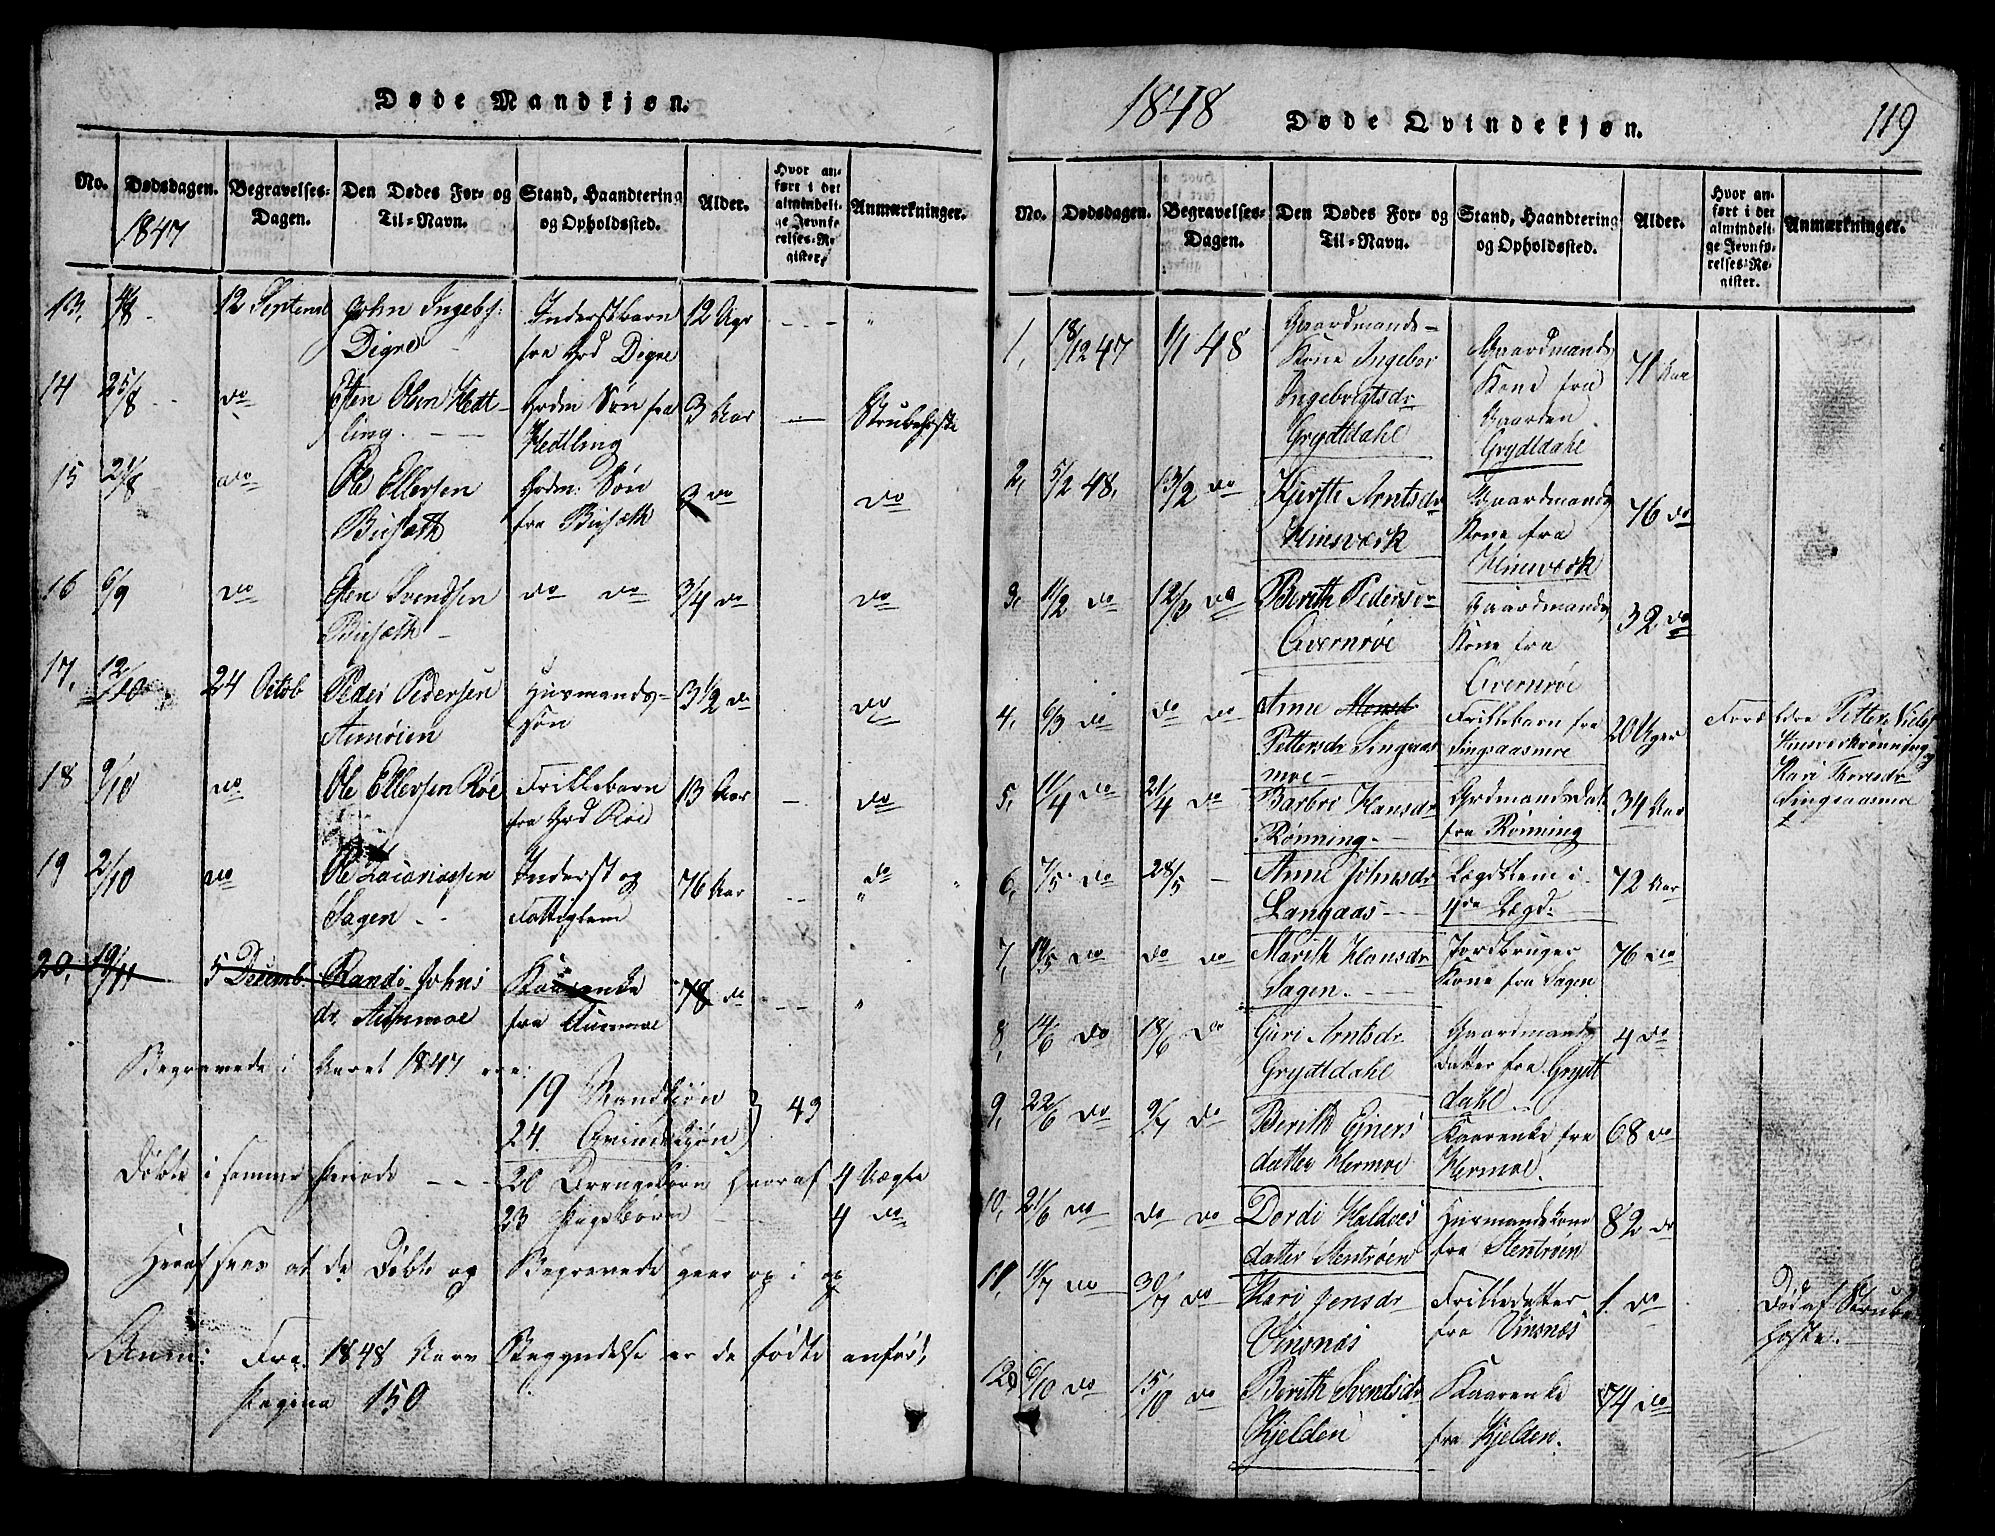 Døde Mandkjøn.
No. Dødsdagen. Begravelses-Dagen. Den Dødes For- og Til-Navn. Stand, Haandtering og Opholdssted. Alder. Hvor anført i det almindelige Jevnførelses-Register. Anmærkninger.
1847
13, 12 Septemb John Ingebr: Inderstbarn 12 Ugr - - - "
Digre - fra Grd Digre
14 25/8 - - do Esten Olsen Hedt- Grdm Søn fra 3 Aar - - Strubehoste
ling. - - Hedtling
15 21/8 do Ole Ellersen Grdm: Søn 3 do do
Busæth fra Busæth
16 6/9 do Esten Svendsen do do 3/4 do do
Busæth -
17, 12/10 24 Octob Peder Pedersen Huusmands- 3 1/2 do do
Aunøien søn
18 9/10 do Ole Ellersen Røe Frillebarn 13 Aar - do
fra Grd Røe
19 2/10 do Ole Zacariassen Inderst og 76 Aar - - do
Sagen - - Fattiglem "
20, 19/11 5 Decemb. Randi Johns Kaarenke 78 do - - "
dr. Aunmoe fra Aunmoe
Begravede i Aaret 1847 ere:
19 Mandkjøn } 43
24. Qvindekjøn
Døbte i samme Periode - - - 20 Drengebørn hvoraf 4 Uægte
23 Pigebørn - - 4 do
Heraf sees at de Døbte og Begravede gaar op i op
Anm: Fra 1848 Aars Begyndelse er de fødte anført,
Pagina 150
1848
Døde Qvindekjøn.
119
No. Dødsdagen. Begravelses-Dagen. Den Dødes For- og Til-Navn. Stand, Haandtering og Opholdssted. Alder. Hvor anført i det almindelige Jevnførelses-Register. Anmærkninger.
1, 18/12 47 1/1 48 Gaardmands- Gaardmands 71 Aar
Kone Ingebor Kone fra
Ingebrigtsdr Gaarden
Grydtdahl Grydtdahl
2, 5/2 48, 13/2 do Kjerste Arntsdr Gaardmands 76 do
Hinsværk Kone fra
Hinsværk
3, 11/2 do 12/3 do Berith Pedersdr Gaardmands 32 do
Qvernrøe Kone fra
Qvernrøe
4, 6/3 do do do Anne Frillebarn fra 20 Uger Forældre Petter
Pettersdr Singsaas Singsaasmoe Hinsverkrønning og
moe - Kari Thoresdr
5, 11/4 do 21/4 do Barbro Hansdr Grdmands Dat. 34 Aar Singsaasmoe
Rønning. - fra Rønning
6, 7/5 do 28/5 - Anne Johnsdr Lægdslem i 72 Aar
Langaas - - 4de Lægd.
7, 19/5 do do do Marith Hansdr Jordbruger 76 do
Sagen. - - Kone fra Sagen
8, 14/6 do 18/6 do Guri Arntsdr Gaardmands 4 do
Grydtdahl Datter fra Grydt
dahl.
9, 22/6 do 9/7 do Berith Ejners Kaarenke fra 68 do
datter Hermoe Hermoe.
10, 21/6 do do do Dordi Haldoes Huusmandskone 82 do
datter Stentrøen fra Stentrøen
11, 19/7 do 30/7 do Kari Jensdr Frilledatter 1 do Død af Strube
Vinsnæs fra Vinsnæs hoste. -
12, 6/10 do 15/10 do Berith Svendsdr Kaarenke 74 do
Kjelden fra Kjelden.